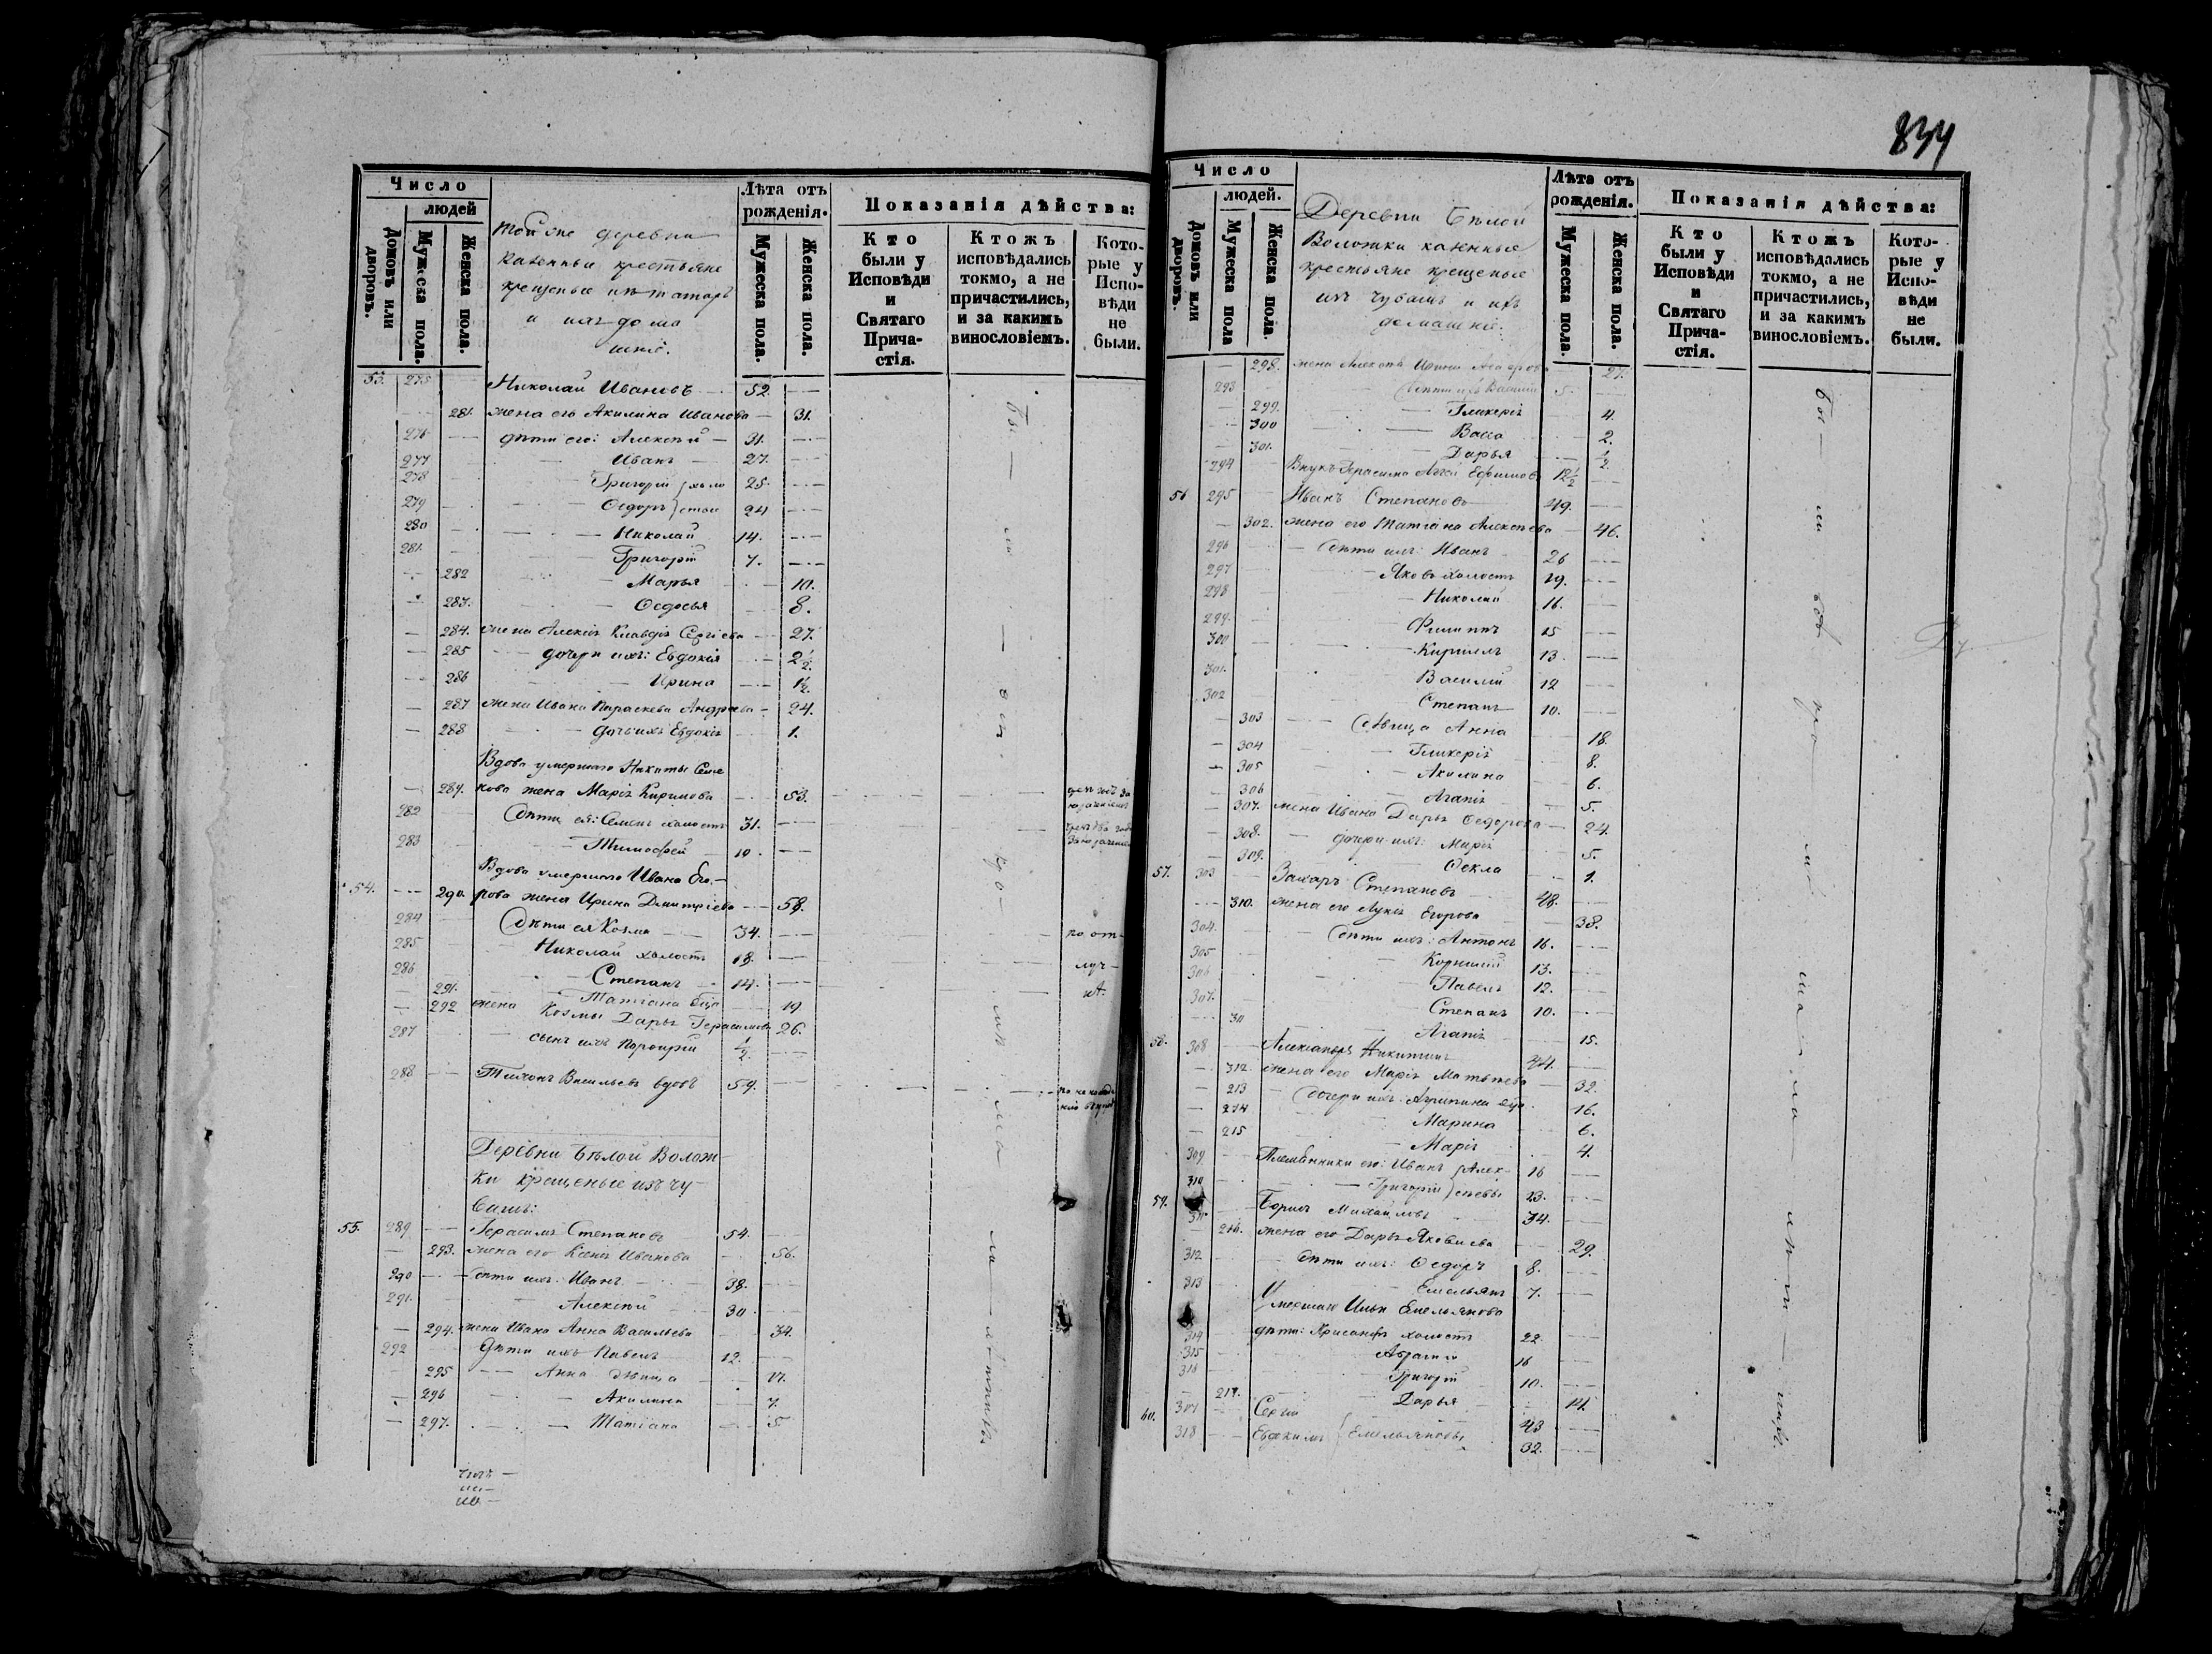 834
Число
людей
Домовъ или дворовъ.
Мужеска пола.
Женска пола.
Той же деревни
казенные крестьяне
крещеные изъ татаръ
и ихъ дома
шніе.
Лѣта отъ рожденія.
Мужеска пола.
Женска пола.
Показанія дѣйства:
Кто были у Исповѣди и Святаго Прича-стія.
Ктожъ исповѣдались токмо, а не причастились, и за какимъ винословіемъ.
Кото-рые у Испо-вѣди не были.
53. 275 Николай Ивановъ 52.
281. жена его Акилина Иванова 31.
276 дѣти его: Алексѣй 31.
277 Иванъ 27.
278 Григорій холо 25.
279 Ѳедоръ стые 24
280 Николай 14.
281. Григорій 7.
282 Марья 10.
283. Ѳедосья 8.
284. жена Алексія Клавдія Сергіева 27.
285 дочери ихъ: Евдокія 2½.
286 Ирина 1½.
287 жена Ивана Параскева Андреева 24.
288 дочь ихъ Евдокія 1.
Вдова умершаго Никиты Семе
289. нова жена Марія Киримова 53.
282 Дѣти ея: Семенъ холостъ 31.
283 Тимофей 19.
Вдова умершаго Ивана Его-
54. 290. рова жена Ирина Дмитріева 58.
284 Дѣти ея Козма 34. по от-
285 Николай холостъ 18. луч-
286 Степанъ 14. кѣ.
291. Татіана 19
292 жена Козмы Дарья Герасимова 26.
287 сынъ ихъ Порфирій ½.
288 Тихонъ Васильевъ вдовъ 59.
Деревни Бѣлой Волож-
ки крещеные изъ чу-
вашъ:
55. 289 Герасимъ Степановъ 54.
293. жена его Ксенія Иванова 56.
290 дѣти ихъ: Иванъ 38.
291. Алексѣй 30.
294. жена Ивана Анна Васильева 34.
292 Дѣти ихъ Павелъ 12.
295 Анна дѣвица 17.
296 Акилина 7.
297. Татіана 5.
Число
людей.
Домовъ или дворовъ.
Мужеска пола
Женска пола.
Деревни Бѣлой
Воложки казенные
крестьяне крещеные
изъ чувашъ и ихъ
домашніе.
Лѣта отъ рожденія.
Мужеска пола.
Женска пола.
Показанія дѣйства:
Кто были у Исповѣди и Святаго Прича-стія.
Ктожъ исповѣдались токмо, а не причастились, и за какимъ винословіемъ.
Кото-рые у Испо-вѣди не были.
298. жена Алексѣя Ирина 27.
293 Дѣти ихъ Василій 5.
299. Гликерія 4.
300 Васса 2.
301. Дарья ½.
294 Внукъ Герасима Ефимовъ 12½
56 295 Иванъ Степановъ 49.
302. жена его Татіана Алексѣева 46.
296 Дѣти ихъ: Иванъ 26
297 Яковъ холостъ 19.
298 Николай 16.
299. Филиппъ 15
300 Кириллъ 13.
301. Василій 12
302 Степанъ 10.
303 Дѣвица Анна 18.
304 Гликерія 8.
305 Акилина 6.
306 Агапія 5.
307. жена Ивана Дарья Ѳедорова 24.
308. дочери ихъ: Марія 5.
309. Ѳекла 1.
57. 303 Захаръ Степановъ 48.
310. жена его Лукія Егорова 38.
304. Дѣти ихъ: Антонъ 16.
305 Корнилій 13.
306 Павелъ 12.
307. Степанъ 10.
311 Агапія 15.
58. 308 Александръ Никитинъ 44.
312. жена его Марія Матвѣева 32.
213 Дочери ихъ: Агрипина 16.
214 Марина 6.
215 Марія 4.
309 Племянники его: Иванъ Алек- 16
310 Григорій сѣевы 13.
59. 311 Борисъ Михаиловъ 34.
216. жена его Дарья Яковлева 29.
312 Дѣти ихъ: Ѳедоръ 8.
313 Емельянъ 7.
Умершаго Ильи Емельянова
314 дѣти: Хрисанфъ холостъ 22.
315 16
316 Григорій 10.
217. Дарья 14.
60. Сергій 43
318 Евдокимъ Емельяновы 32.